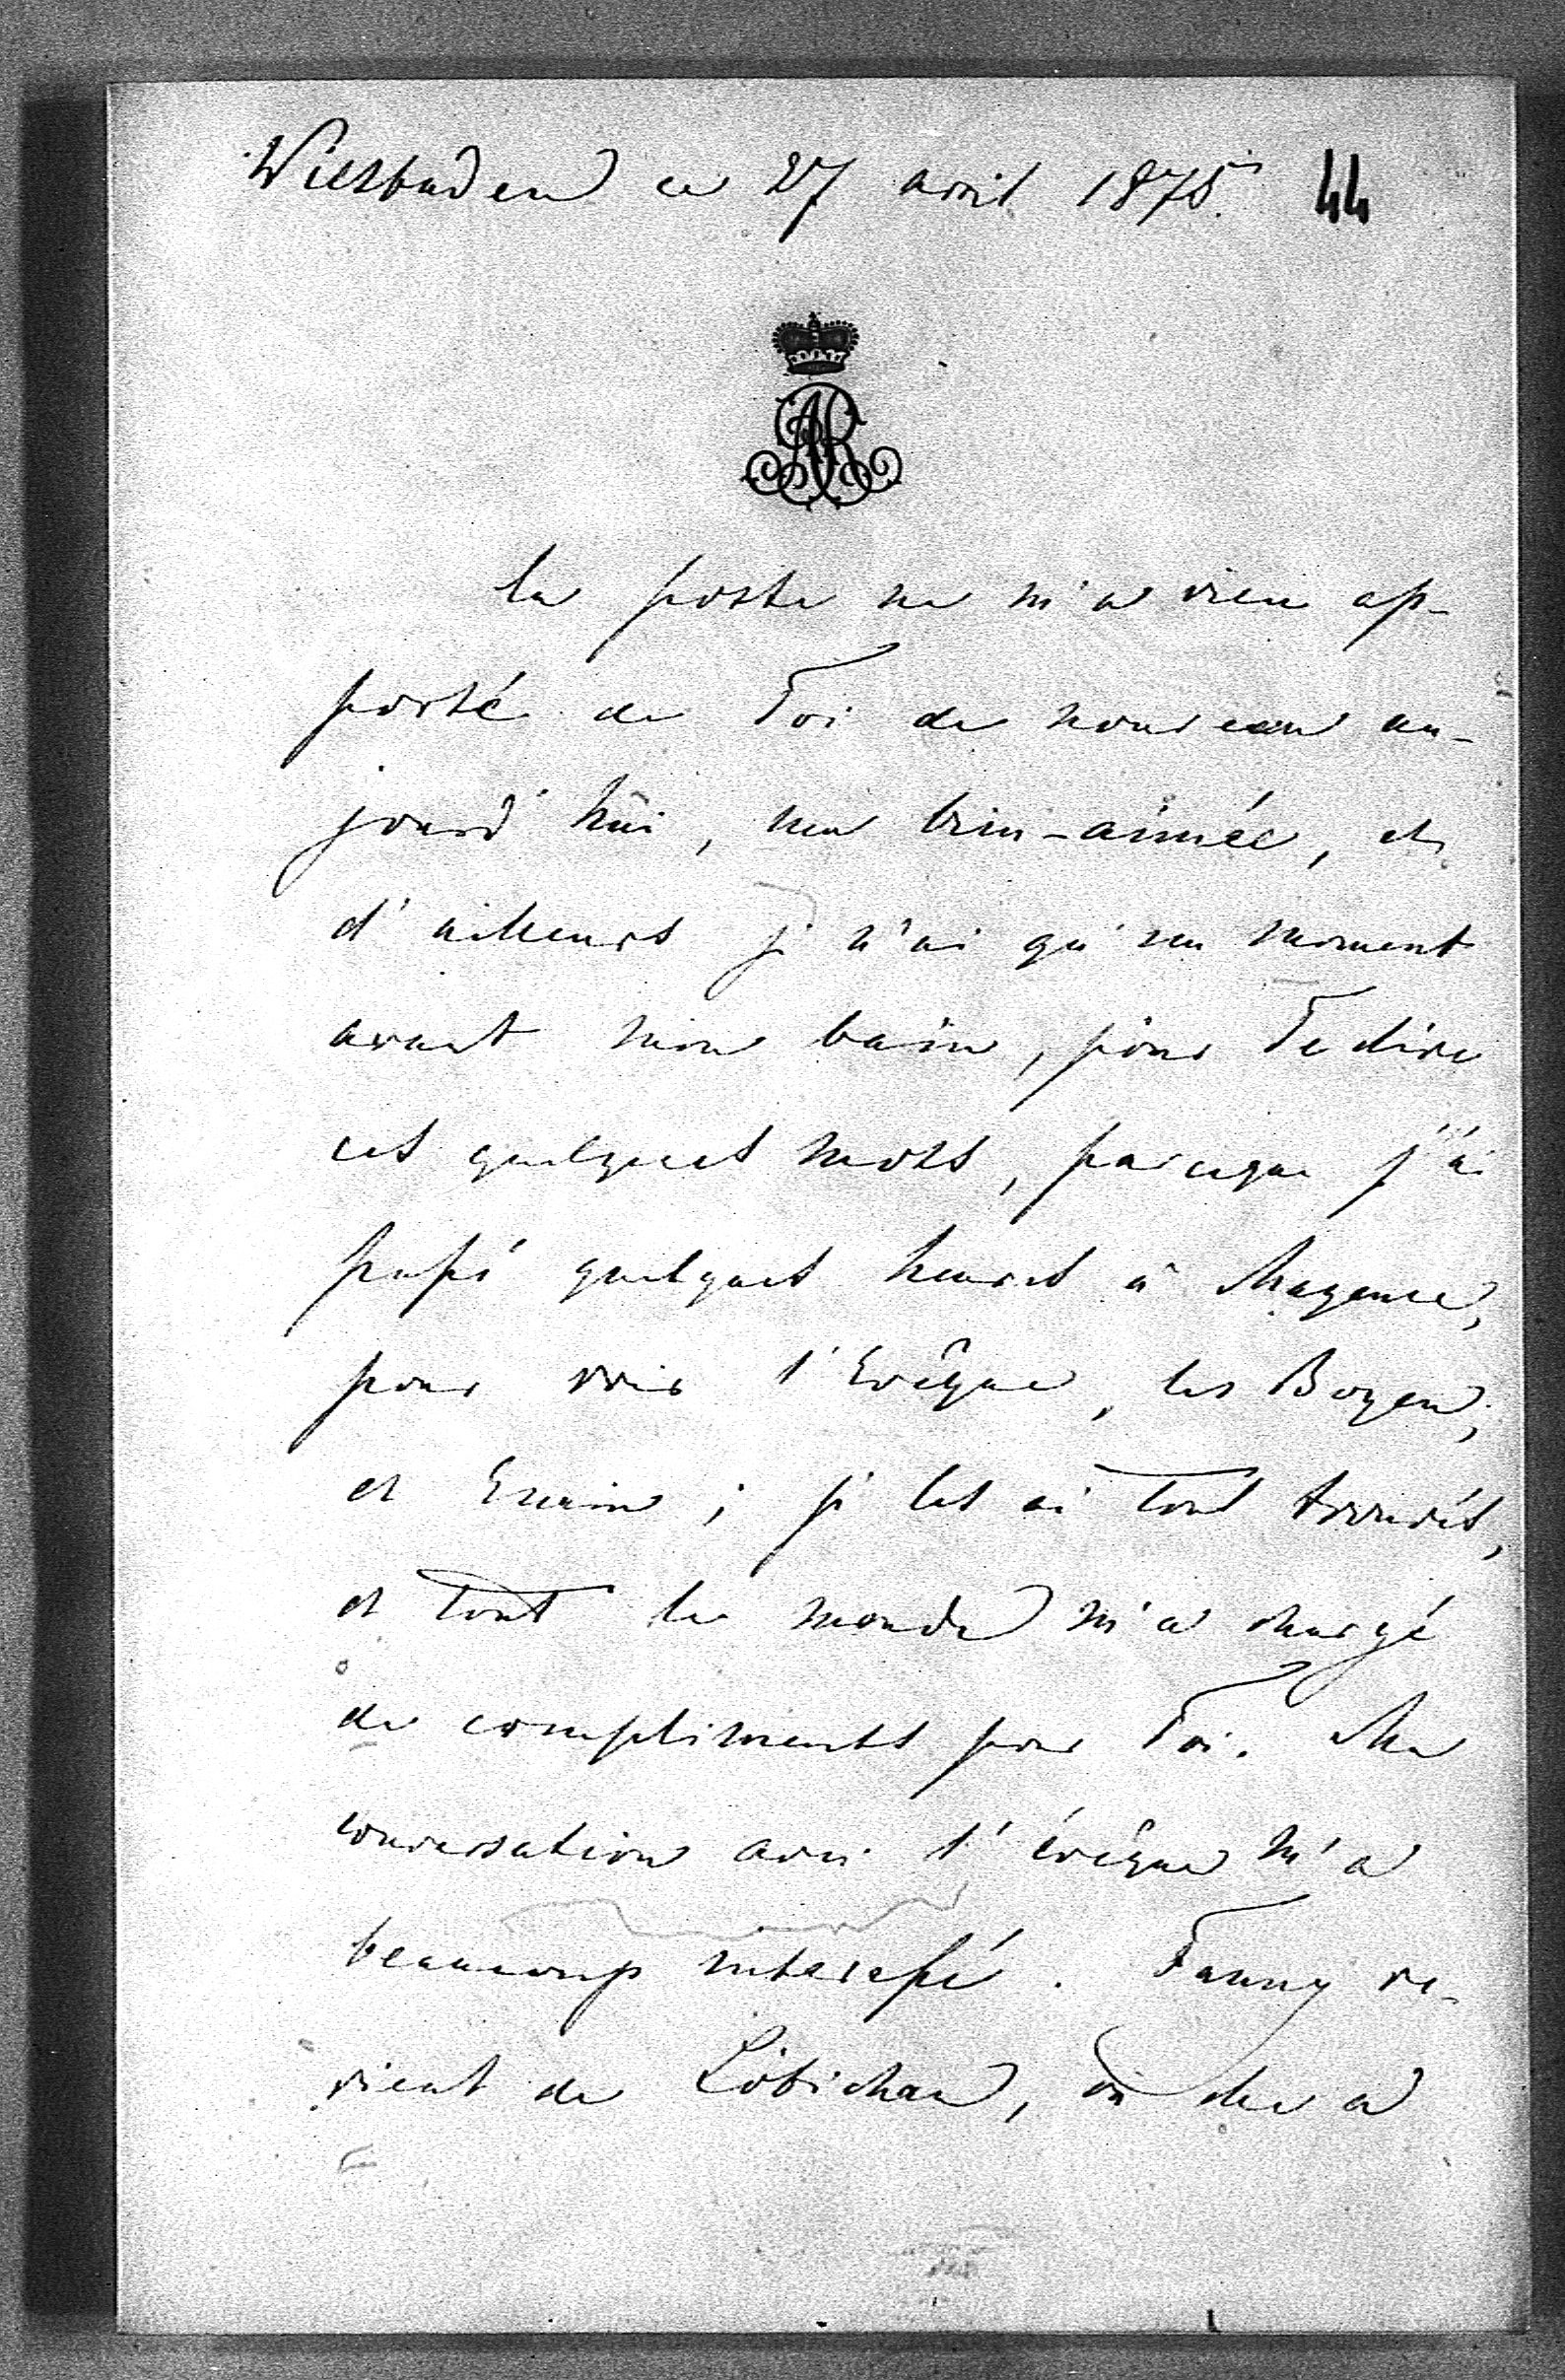 Wiesbaden ce 27 avril 1875. 44
AR
la poste ne m'a rien ap-
porté de Toi de nouveau au-
jourd'hui, ma bien-aimée, et
d'ailleurs je n'ai qu'un moment
avant mon bain, pour Te dire
ces quelques mots, parceque j'ai
passé quelques heures à Mayence,
pour voir l'Evêque, les Boyen,
et ; je les ai tous trouvés,
et tout le monde m'a chargé
de compliments pour Toi. Ma
conversation avec l'évêque m'a
beaucoup interessé. Fanny re-
vient de Löbichau, où elle a